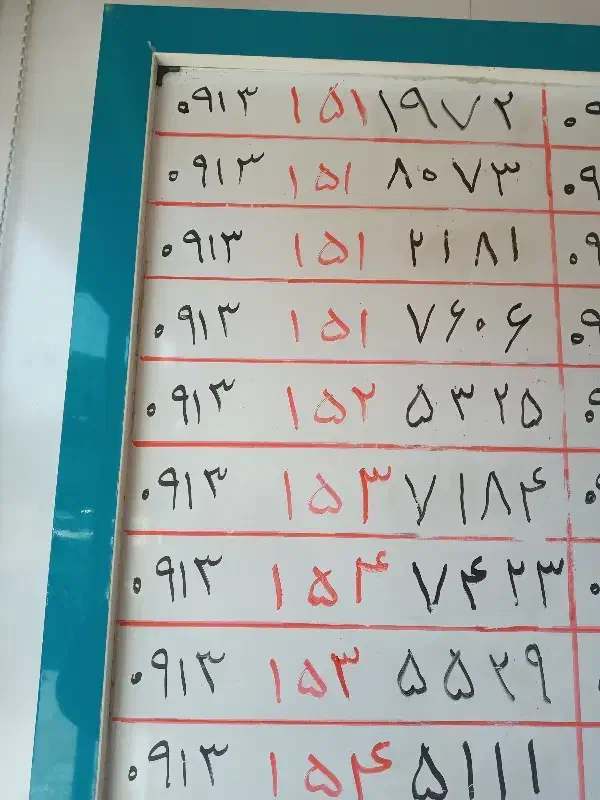 ۰۹۱۳ ۱۵۱ ۱۹۷۲ ۰۹
۰۹۱۳ ۱۵۱ ۸۰۷۳ ۰۹
۰۹۱۳ ۱۵۱ ۲۱۸۱ ۰۹
۰۹۱۳ ۱۵۱ ۷۶۰۶ ۰۹
۰۹۱۳ ۱۵۲ ۵۳۲۵ ۰
۰۹۱۳ ۱۵۳ ۷۱۸۴ ۰
۰۹۱۳ ۱۵۴ ۷۴۲۳ ۰
۰۹۱۳ ۱۵۳ ۵۵۲۹
۰۹۱۳ ۱۵۴ ۵۱۱۱